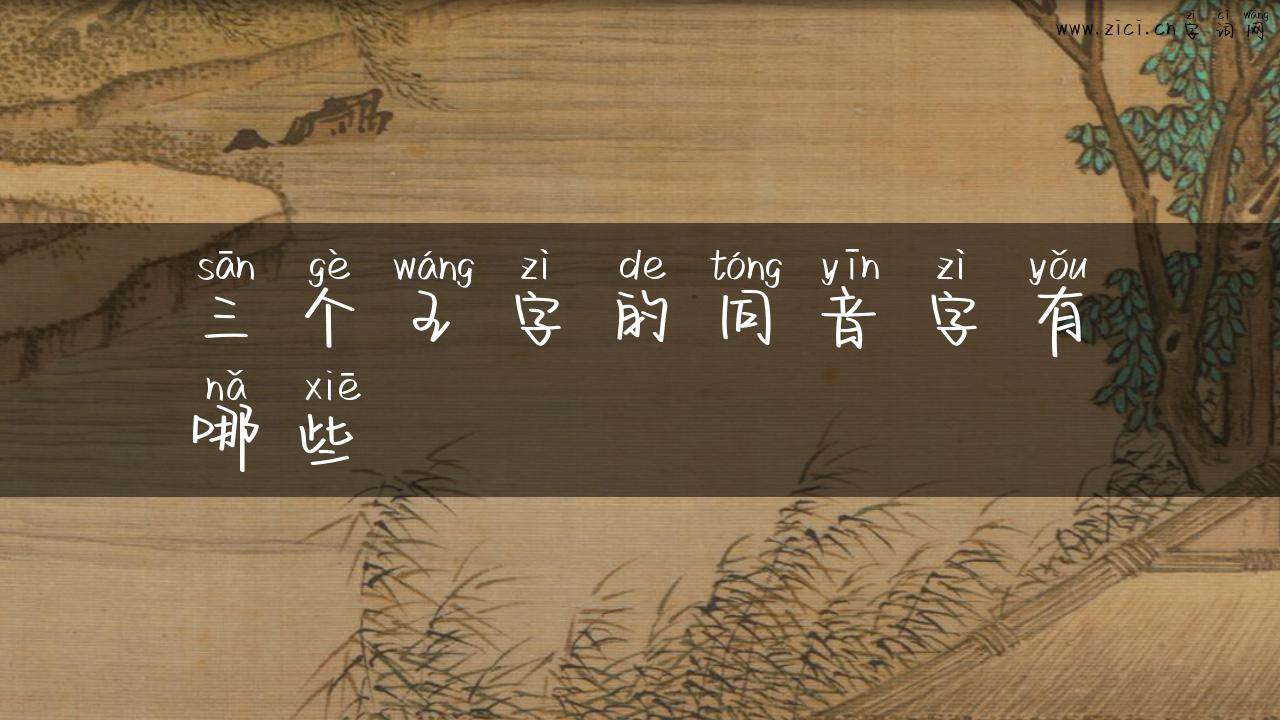 zì cí wǎng
www.zici.cn字词网
sān gè wáng zì de tóng yīn zì yǒu
三个王字的同音字有
nǎ xiē
哪些